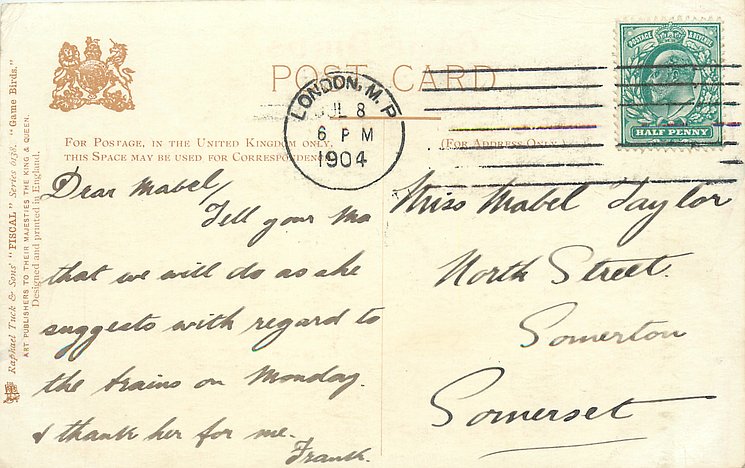 Raphael Tuck & Sons' "FISCAL" Series 6158. "Game Birds."
ART PUBLISHERS TO THEIR MAJESTIES THE KING & QUEEN.
Designed and printed in England.
POST CARD
FOR POSTAGE, IN THE UNITED KINGDOM ONLY,
THIS SPACE MAY BE USED FOR CORRESPONDENCE
(FOR ADDRESS ONLY.)
LONDON, M.P
JUL 8
6 PM
1904
POSTAGE & REVENUE
HALF PENNY
Dear Mabel,
Tell your Ma
that we will do as she
suggests with regard to
the trains on Monday.
& thank her for me.
Frank.
Miss Mabel Taylor
North Street.
Somerton
Somerset